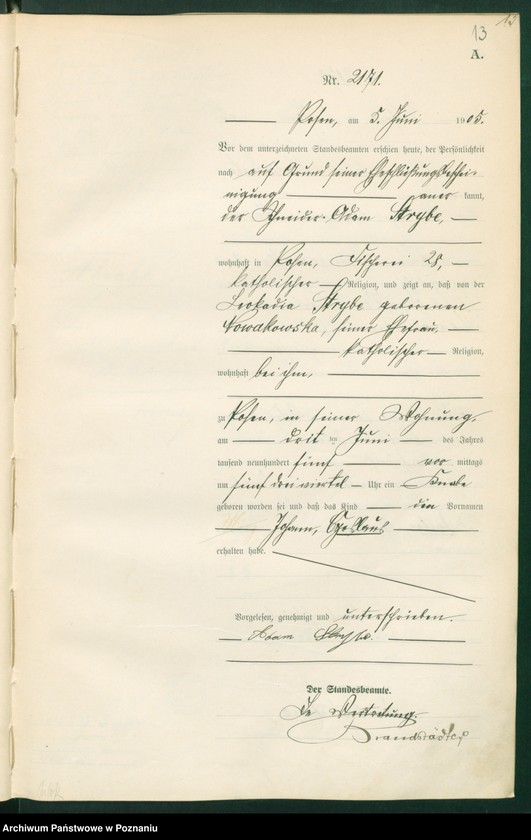 13
13
A.
Nr. 2171.
Posen, am 5. Juni 1905.
Vor dem unterzeichneten Standesbeamten erschien heute, der Persönlichkeit
nach auf Grund seiner Eheschließungsbeschei-
nigung aner kannt,
der Schneider Adam Strybe,
wohnhaft in Posen, Fischerei 28,
katholischer Religion, und zeigt an, daß von der
Leokadia Strybe geborenen
Nowakowska, seiner Ehefrau,
katholischer Religion,
wohnhaft bei ihm,
zu Posen, in seiner Wohnung,
am drit ten Juni des Jahres
tausend neunhundert fünf vor mittags
um fünf dreiviertel Uhr ein Knabe
geboren worden sei und daß das Kind den Vornamen
Johann,
erhalten habe.
Vorgelesen, genehmigt und unterschrieben.
Adam
Der Standesbeamte.
In Vertretung.
Brandstädter
Archiwum Państwowe w Poznaniu